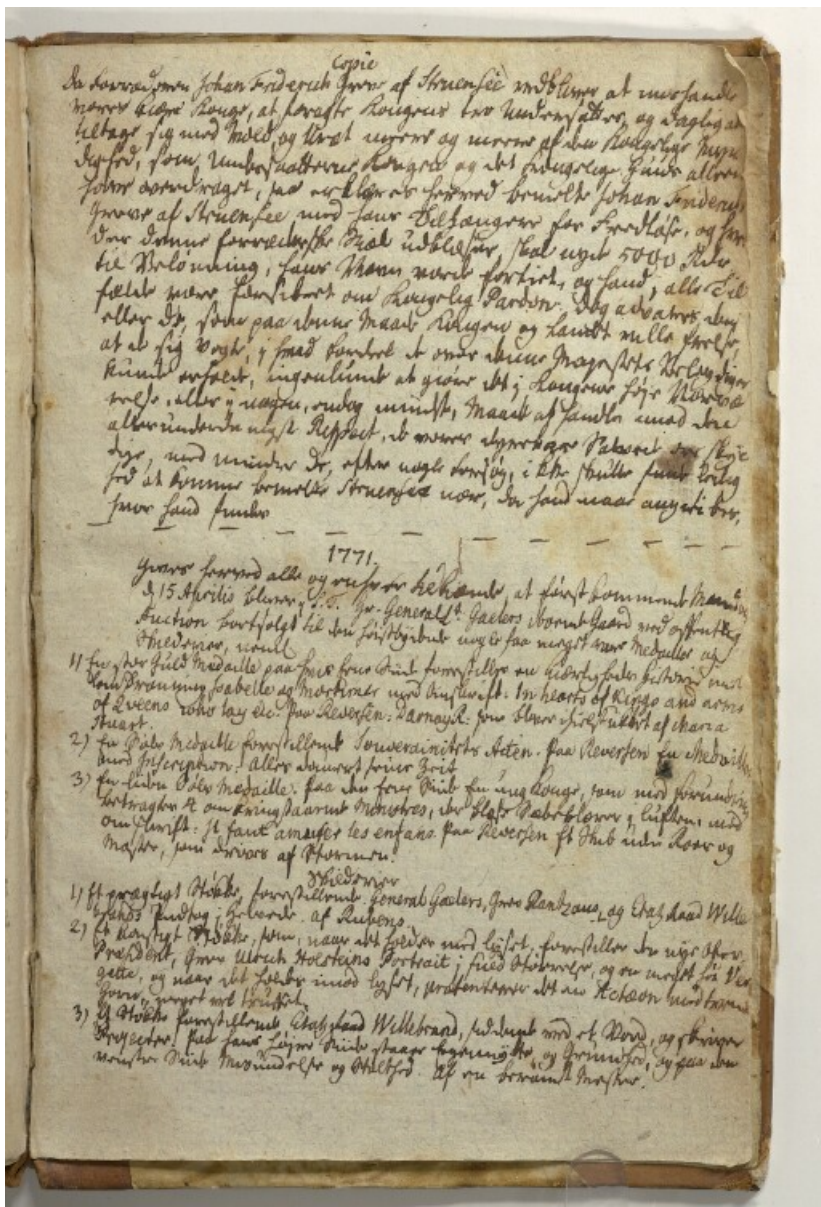 Copie
Da Forræderen Johan Friderich Greve af Struensee vedbliver at mishandle
vores kiære Konge, at foragte Kongens troe Undersaatter, og daglig at
tiltage sig med Vold, og Uræt meere og meere af den Kongelige Myn
dighed, som Undersaatterne Kongen og det Kongelige Huus alleene
have overdraget, saa erklæres herved bemelte Johan Friderich
Greve af Struensee med hans Tilhængere for Fredløse, og hvo
der denne forræderske Siæl udblæser, skal nyde 5000 Rdr
til Belønning, hans Navn vorde fortiet, og hand, i alle Til
fælde være forsikret om Kongelig Pardon. Dog advares den
eller de, som paa denne Maade Kongen og Landet ville frelse,
at de sig vogte, i hvad Fordeel de over denne Majestets Belædiger
kunde erholde, ingenlunde at giøre det i Kongens høje Nærvæ
relse, eller i nogen, endog mindste, Maade at handle imod den
allerunderdanigst Respect, de vores dyrebare Salvede ere skyl
dige, med mindre de, efter nogle Forsøg, ikke skulle finde Leylig
hed at komme bemelte Struensee nær, da hand maae angribes,
hvor hand findes
1771.
Giøres herved alle og enhver bekiendt, at førstkommende Mandag
d. 15 Aprilis bliver i Hr. General Gaelers iboende Gaard ved offentlig
Auction bortsolgt til den høistbydende nogle faa meget rare Medailler og
Skilderier, nemlig
1) En stor Guld Medaille paa hvis Eene Side forestilles en Kierligheds Historie mel
lem Dronning Isabelle og Mortimer med Omskrift: In hearts of Kings and arms
of Queens who lay etc. Paa Reversen: Darnay R: som bliver ihielstukket af Maria
Stuart.
2) En Sølv Medaille forestillende Souverainitets Acten. Paa Reversen En Medaille
med Inscription: Alles dauert seine Zeit
3) En liden Sølv Medaille. Paa den Eene Side En ung Konge, som med Forundring
betragter 4 omkringstaaende Ministres, der blæse Sæbebobler i Luften, med
Omskrift: Il faut amuser les enfans. Paa Reversen Et Skib uden Roer og
Master, som drives af Stormen.
Skilderier
1) Et prægtigt Stÿkke, forestillende General Gaelers, Grev Rantzous, og Etatz Raad Wille
brands Indtog i Helvede. af Rubens.
2) Et konstigt Stÿkke, som, naar det holdes mod lyset, forestiller den nye Ober
Præsident, Greve Ulrich Holsteins Portrait i fuld Størrelse, og en meget høi Ver
gette, og naar det holdes imod lyset, præsenterer det en Actæon med tvende
Horn, meget vel truffet.
3) Et Stÿkke forestillende Etatz Raad Willebrand, siddende ved et Bord, og skriver
Projecter. Paa hans Højre Side staaer Egennytte, og Grumhed, og paa den
venstre Side Misundelse og Stolthed. Af en berømt Mester.